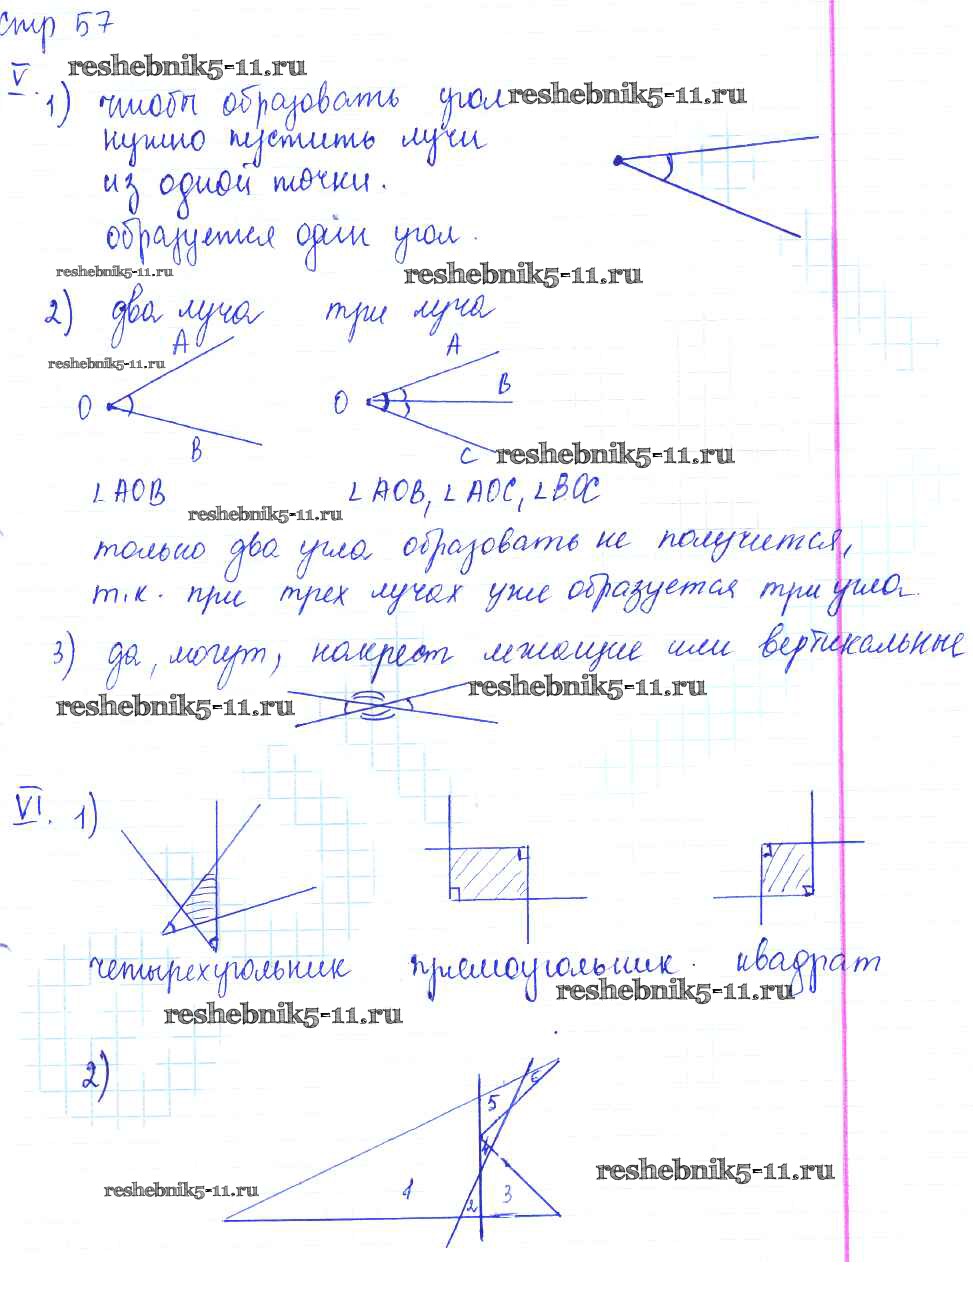 стр 57
V. reshebnik5-11.ru
1) чтобы образовать угол reshebnik5-11.ru
нужно пустить лучи
из одной точки.
образуется один угол.
reshebnik5-11.ru reshebnik5-11.ru
2) два луча три луча
reshebnik5-11.ru
A A
O B O B C reshebnik5-11.ru
∠AOB ∠AOB, ∠AOC, ∠BOC
reshebnik5-11.ru
только два угла образовать не получится,
т.к. при трех лучах уже образуется три угла.
3) да, могут, накрест лежащие или вертикальные
reshebnik5-11.ru reshebnik5-11.ru
VI. 1)
четырехугольник прямоугольник. квадрат
reshebnik5-11.ru reshebnik5-11.ru
2)
5 6
4
reshebnik5-11.ru 1 2 3 reshebnik5-11.ru